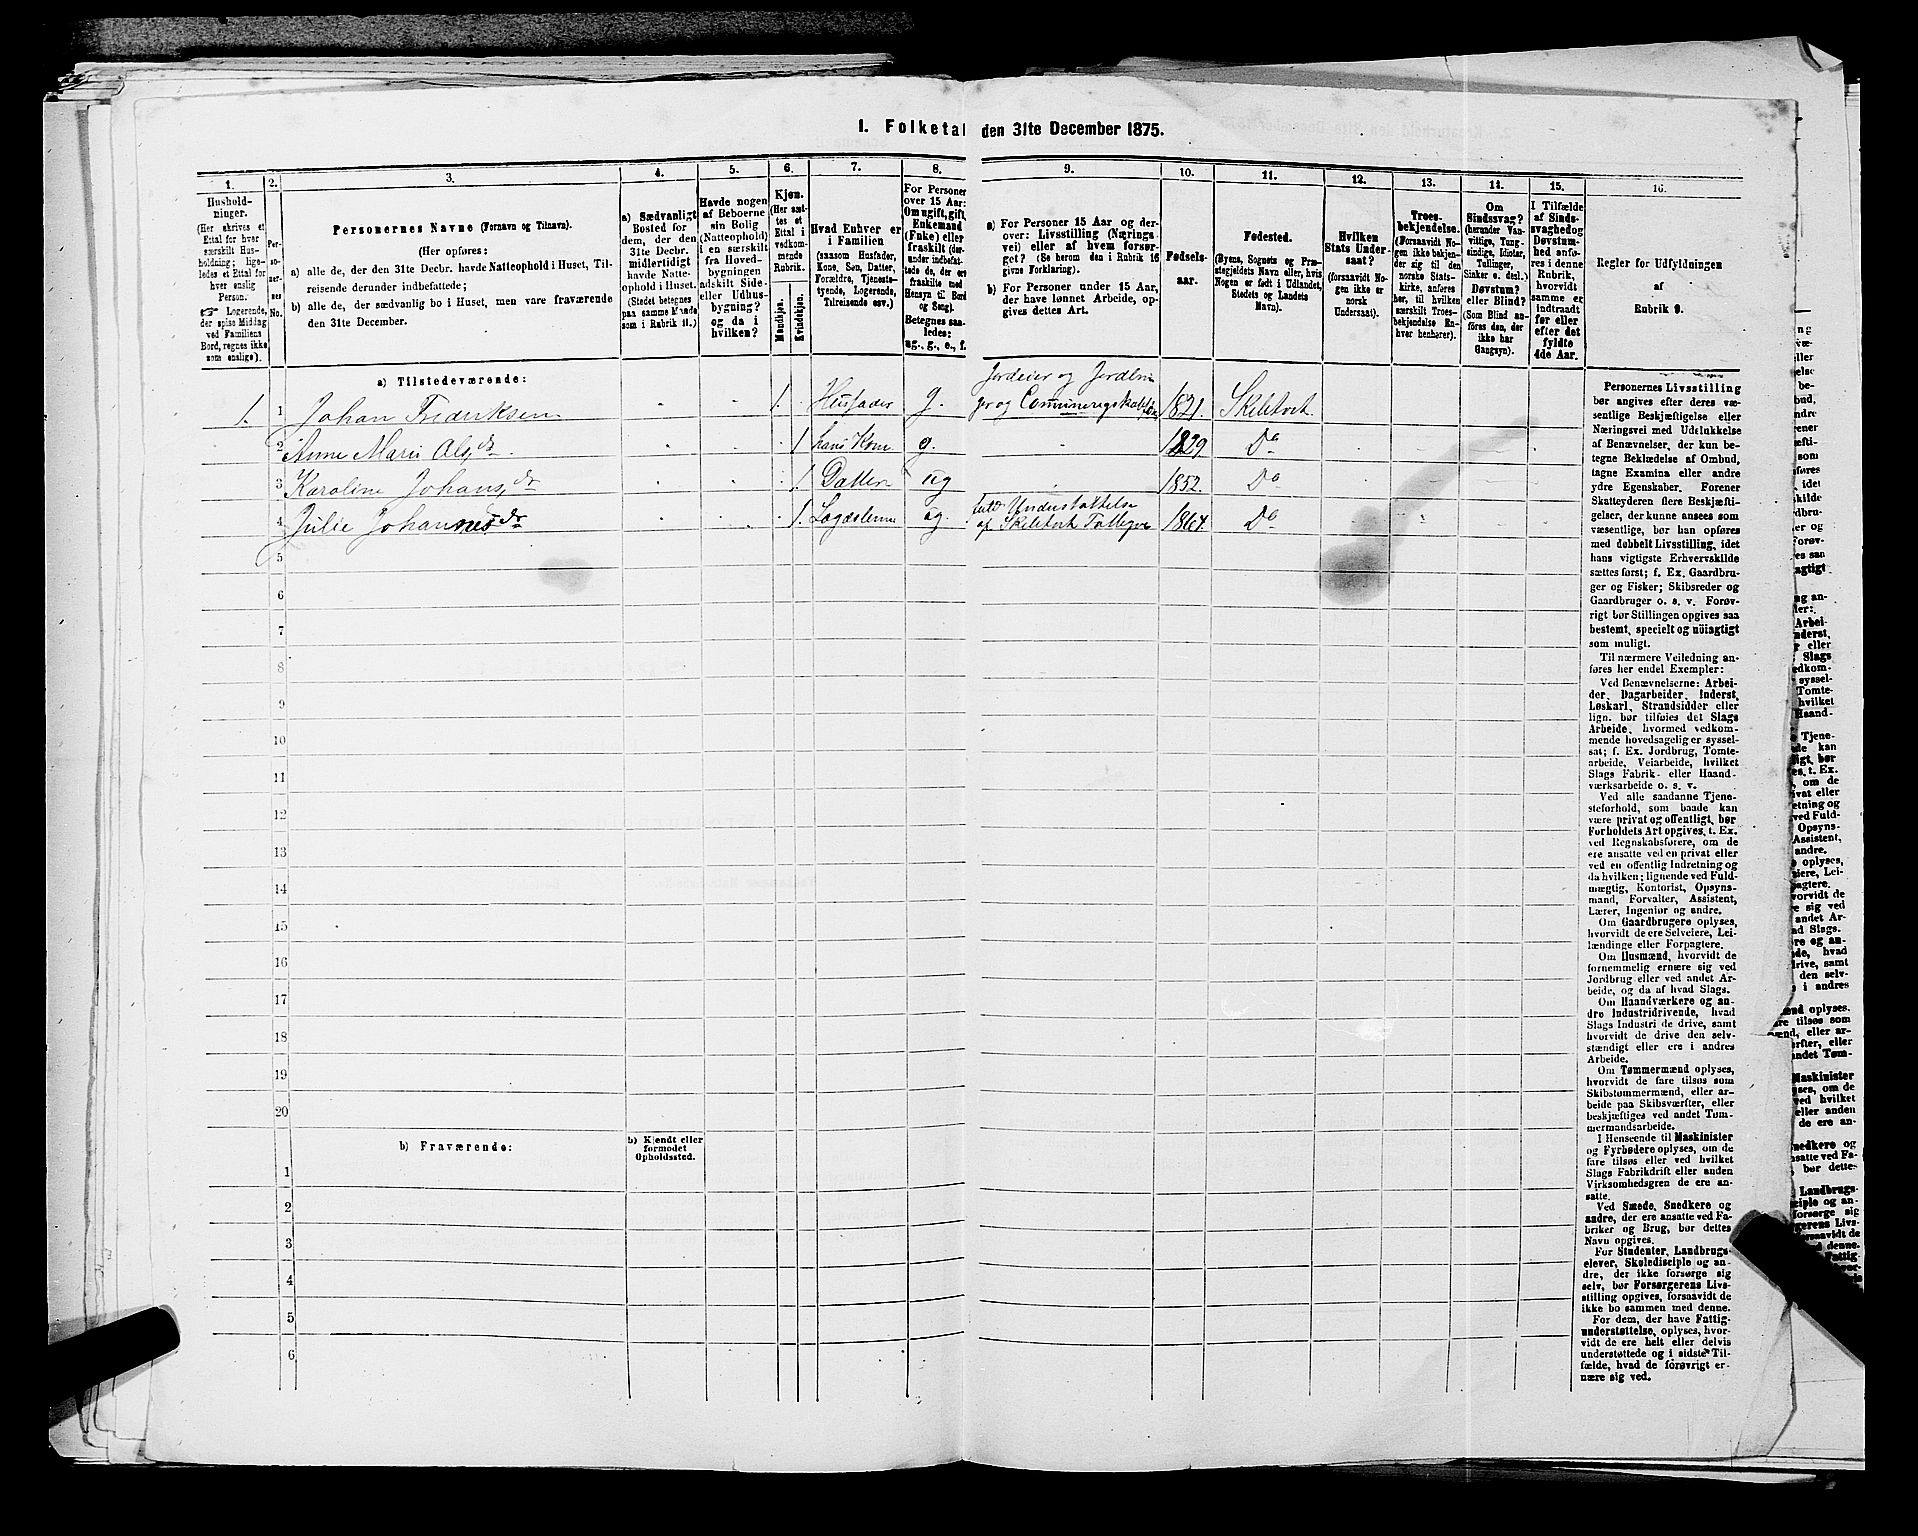 1. Folketal den 31te December 1875.
1.
Hushold-
ninger.
(Her skrives et
Ettal for hver
særskilt Hus-
holdning; lige-
ledes et Ettal for
hver enslig
Person.
☞ Logerende,
der spise Middag
ved Familiens
Bord, regnes ikke
som enslige).
2.
Per-
so-
ner-
nes
No.
3.
Personernes Navne (Fornavn og Tilnavn).
(Her opføres:
a) alle de, der den 31te Decbr. havde Natteophold i Huset, Til-
reisende derunder indbefattede;
b) alle de, der sædvanlig bo i Huset, men vare fraværende
den 31te December.
4.
a) Sædvanligt
Bosted for
dem, der den
31te Decbr.
midlertidigt
havde Natte-
ophold i Huset.
(Stedet betegnes
paa samme Maade
som i Rubrik 11.)
5.
Havde nogen
af Beboerne
sin Bolig
(Natteophold)
i en særskilt
fra Hoved-
bygningen
adskilt Side-
eller Udhus-
bygning?
og da i
hvilken?
6.
Kjøn.
(Her sæt-
tes et
Ettal i
vedkom-
mende
Rubrik.
Mandkjøn.
Kvindekjøn.
7.
Hvad Enhver er
i Familien
(saasom Husfader,
Kone, Søn, Datter,
Forældre, Tjeneste-
tyende, Logerende,
Tilreisende osv.)
8.
For Personer
over 15 Aar:
Om ugift, gift,
Enkemand
(Enke) eller
fraskilt (der-
under indbefat-
tede de, der ere
fraskilte med
Hensyn til Bord
og Seng).
Betegnes saa-
ledes:
ug., g., e., f.
9.
a) For Personer 15 Aar og der-
over: Livsstilling (Nærings-
vei) eller af hvem forsør-
get? (Se herom den i Rubrik 16
givne Forklaring).
b) For Personer under 15 Aar,
der have lønnet Arbeide, op-
gives dettes Art.
10.
Fødsels-
aar.
11.
Fødested.
(Byens, Sognets og Præ-
stegjeldets Navn eller, hvis
Nogen er født i Udlandet,
Stedets og Landets
Navn).
12.
Hvilken
Stats Under-
saat?
(forsaavidt No-
gen ikke er
norsk
Undersaat).
13.
Troes-
bekjendelse.
(Forsaavidt No-
gen ikke bekjen-
der sig til den
norske Stats-
kirke, anføres
her, til hvilken
særskilt Troes-
bekjendelse En-
hver henhører).
14.
Om
Sindssvag?
(herunder Van-
vittige, Tung-
sindige, Idioter,
Tullinger,
Sinker o. desl.)
Døvstum?
eller Blind?
(Som Blind an-
føres den, der
ikke har
Gangsyn).
15.
I Tilfælde
af Sinds-
svaghed og
Døvstum-
hed anfø-
res i denne
Rubrik,
hvorvidt
samme er
indtraadt
før eller
efter det
fyldte
4de Aar.
16.
Regler for Udfyldningen
af
Rubrik 9.
a) Tilstedeværende:
1. 1 Johan Fredriksen 1. Husfader g. Jordeier og 1821. Skibtvet.
2 Anne Marie Olsdr 1 hans Kone g. 1829 Do
3 Karoline Johansdr 1 Datter ug 1852. Do
4 Julie Johannesdr 1. Lægdslem ug Understøttelse
af Skibtvet 1864. Do
5
6
7
8
9
10
11
12
13
14
15
16
17
18
19
20
b) Fraværende:
b) Kjendt eller
formodet
Opholdssted.
1
2
3
4
5
6
Personernes Livsstilling
bør angives efter deres væ-
sentlige Beskjæftigelse eller
Næringsvei med Udelukkelse
af Benævnelser, der kun be-
tegne Beklædelse af Ombud,
tagne Examina eller andre
ydre Egenskaber. Forener
Skatteyderen flere Beskjæfti-
gelser, der kunne ansees som
væsentlige, bør han opføres
med dobbelt Livsstilling, idet
hans vigtigste Erhvervskilde
sættes først; f. Ex. Gaardbru-
ger og Fisker; Skibsreder og
Gaardbruger o. s. v. Forøv-
rigt bør Stillingen opgives saa
bestemt, specielt og nöiagtigt
som muligt.
Til nærmere Veiledning an-
føres her endel Exempler:
Ved Benævnelserne: Arbei-
der, Dagarbeider, Inderst,
Løskarl, Strandsidder eller
lign. bør tilføies det Slags
Arbeide, hvormed vedkom-
mende hovedsagelig er syssel-
sat; f. Ex. Jordbrug, Tomte-
arbeide, Veiarbeide, hvilket
Slags Fabrik- eller Haand-
værksarbeide o. s. v.
Ved alle saadanne Tjene-
steforhold, som baade kan
være privat og offentligt, bør
Forholdets Art opgives, t. Ex.
ved Regnskabsførere, om de
ere ansatte ved en privat eller
ved en offentlig Indretning og
da hvilken; lignende ved Fuld-
mægtig, Kontorist, Opsyns-
mand, Forvalter, Assistent,
Lærer, Ingeniør og andre.
Om Gaardbrugere oplyses,
hvorvidt de ere Selveiere, Lei-
lændinge eller Forpagtere.
Om Husmænd, hvorvidt de
fornemmelig ernære sig ved
Jordbrug eller ved andet Ar-
beide, og da af hvad Slags.
Om Haandværkere og an-
dre Industridrivende, hvad
Slags Industri de drive, samt
hvorvidt de drive den selv-
stændigt eller ere i andres
Arbeide.
Om Tømmermænd oplyses,
hvorvidt de fare tilsøs som
Skibstømmermænd, eller ar-
beide paa Skibsværfter, eller
beskjæftiges ved andet Tøm-
mermandsarbeide.
I Henseende til Maskinister
og Fyrbødere oplyses, om de
fare tilsøs eller ved hvilket
Slags Fabrikdrift eller anden
Virksomhedsgren de ere an-
satte.
Ved Smede, Snedkere og
andre, der ere ansatte ved Fa-
briker og Brug, bør dettes
Navn opgives.
For Studenter, Landbrugs-
elever, Skoledisciple og an-
dre, der ikke forsørge sig
selv, bør Forsørgerens Livs-
stilling opgives, forsaavidt de
ikke bo sammen med denne.
For dem, der have Fattig-
understøttelse, oplyses, hvor-
vidt de ere helt eller delvis
understøttede og i sidste Til-
fælde, hvad de forøvrigt er-
nære sig ved.